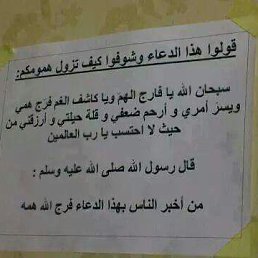 قولوا هذا الدعاء وشوفوا كيف تزول همومكم:
سبحان الله يا فارج الهم ويا كاشف الغم فرج همي
ويسر أمري و أرحم ضعفي و قلة حيلتي و أرزقني من
حيث لا احتسب يا رب العالمين
قال رسول الله صلى الله عليه وسلم :
من أخبر الناس بهذا الدعاء فرج الله همه